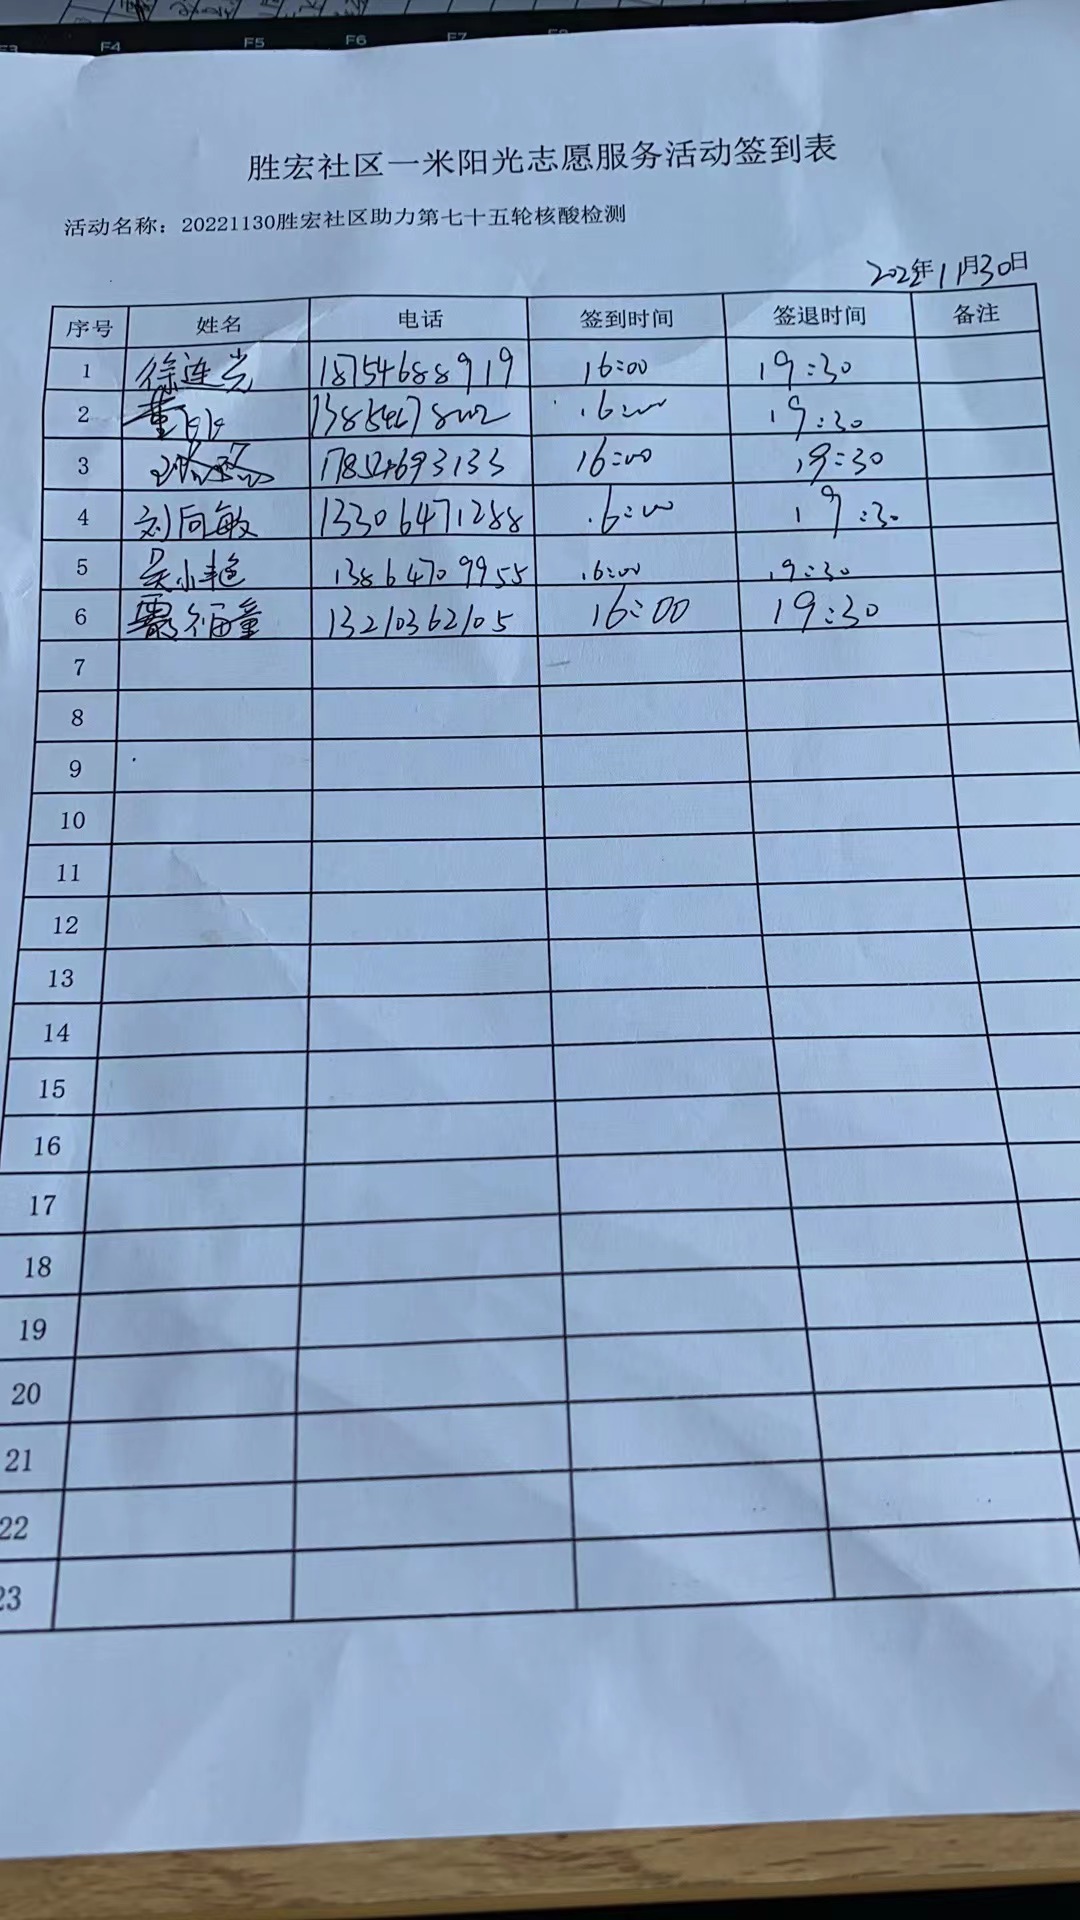 F4 F5 F6 F7
胜宏社区一米阳光志愿服务活动签到表
活动名称：20221130胜宏社区助力第七十五轮核酸检测
2022年11月30日
序号 姓名 电话 签到时间 签退时间 备注
1 徐连光 18754688919 16:00 19:30
2 董 16:00 19:30
3 17854693133 16:00 19:30
4 刘向敏 13306471288 16:00 19:30
5 吴小艳 13864709955 16:00 19:30
6 福童 13210362105 16:00 19:30
7
8
9
10
11
12
13
14
15
16
17
18
19
20
21
22
23